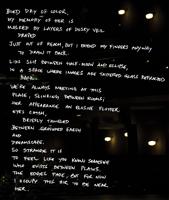 DEAD DAY OF COLOR,
MY MEMORY OF HER IS
MASKED BY LAYERS OF DUSKY VEIL
DRAPED
JUST OUT OF REACH, BUT I EXTEND MY FINGERS ANYWAY
TO DRAW IT BACK.
LIDS SLIP BETWEEN HALF-MOON AND ECLIPSE,
TO A SPACE WHERE IMAGES ARE SHATTERED GLASS REFRACTED
BACK.
WE'RE ALWAYS MEETING AT THIS
PLACE, SLINKING BETWEEN REALMS;
HER APPEARANCE AN ELUSIVE FLUTTER.
EYES CATCH,
BRIEFLY TANGLED
BETWEEN GROUNDED EARTH
AND
DREAMSCAPE.
SO STRANGE IT IS
TO FEEL LIKE YOU KNOW SOMEONE
WHO EXISTS BETWEEN PLANES.
THE EDGES FADE, BUT FOR NOW
I OCCUPY THIS AIR TO BE NEAR
HER.